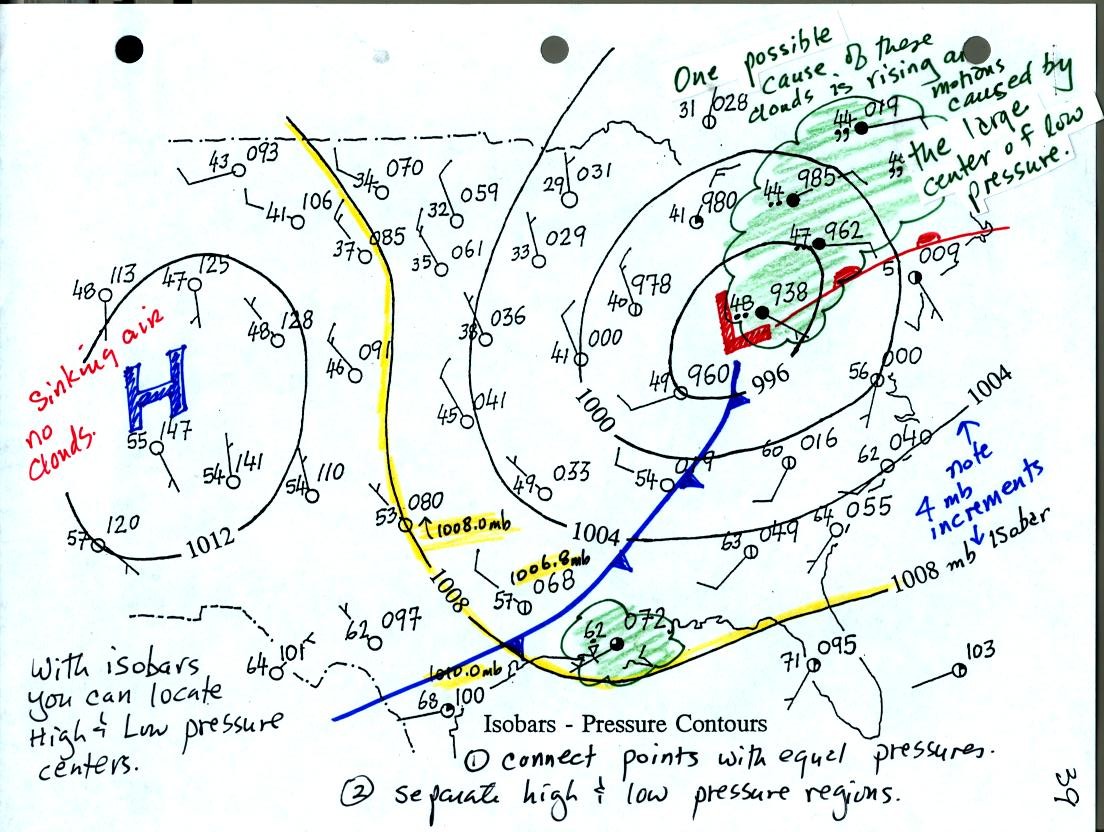 One possible
cause of these
clouds is rising air
motions
caused by
the large
center of low
pressure.
31 028
44 019
43 093
34 070
29 031
41 980
44 985
41 106
32 059
37 085
35 061
33 029
47 962
48 113
47 125
48 128
40 978
48 938
009
38 036
41 000
46 091
49 960
996
56 000
1004
Sinking air
no
clouds.
H
L
55 147
54 141
54 110
45 041
1000
60 016
62 040
note
4 mb
increments
49 033
54
57 120
1012
53 080
1008.0mb
1004
63 049
64 055
1008 mb Isobar
1006.8mb
57 068
1008
62 097
62 072
64 101
1010.0mb
68 100
71 095
103
With isobars
you can locate
High & Low pressure
centers.
Isobars - Pressure Contours
① connect points with equal pressures.
② separate high & low pressure regions.
39